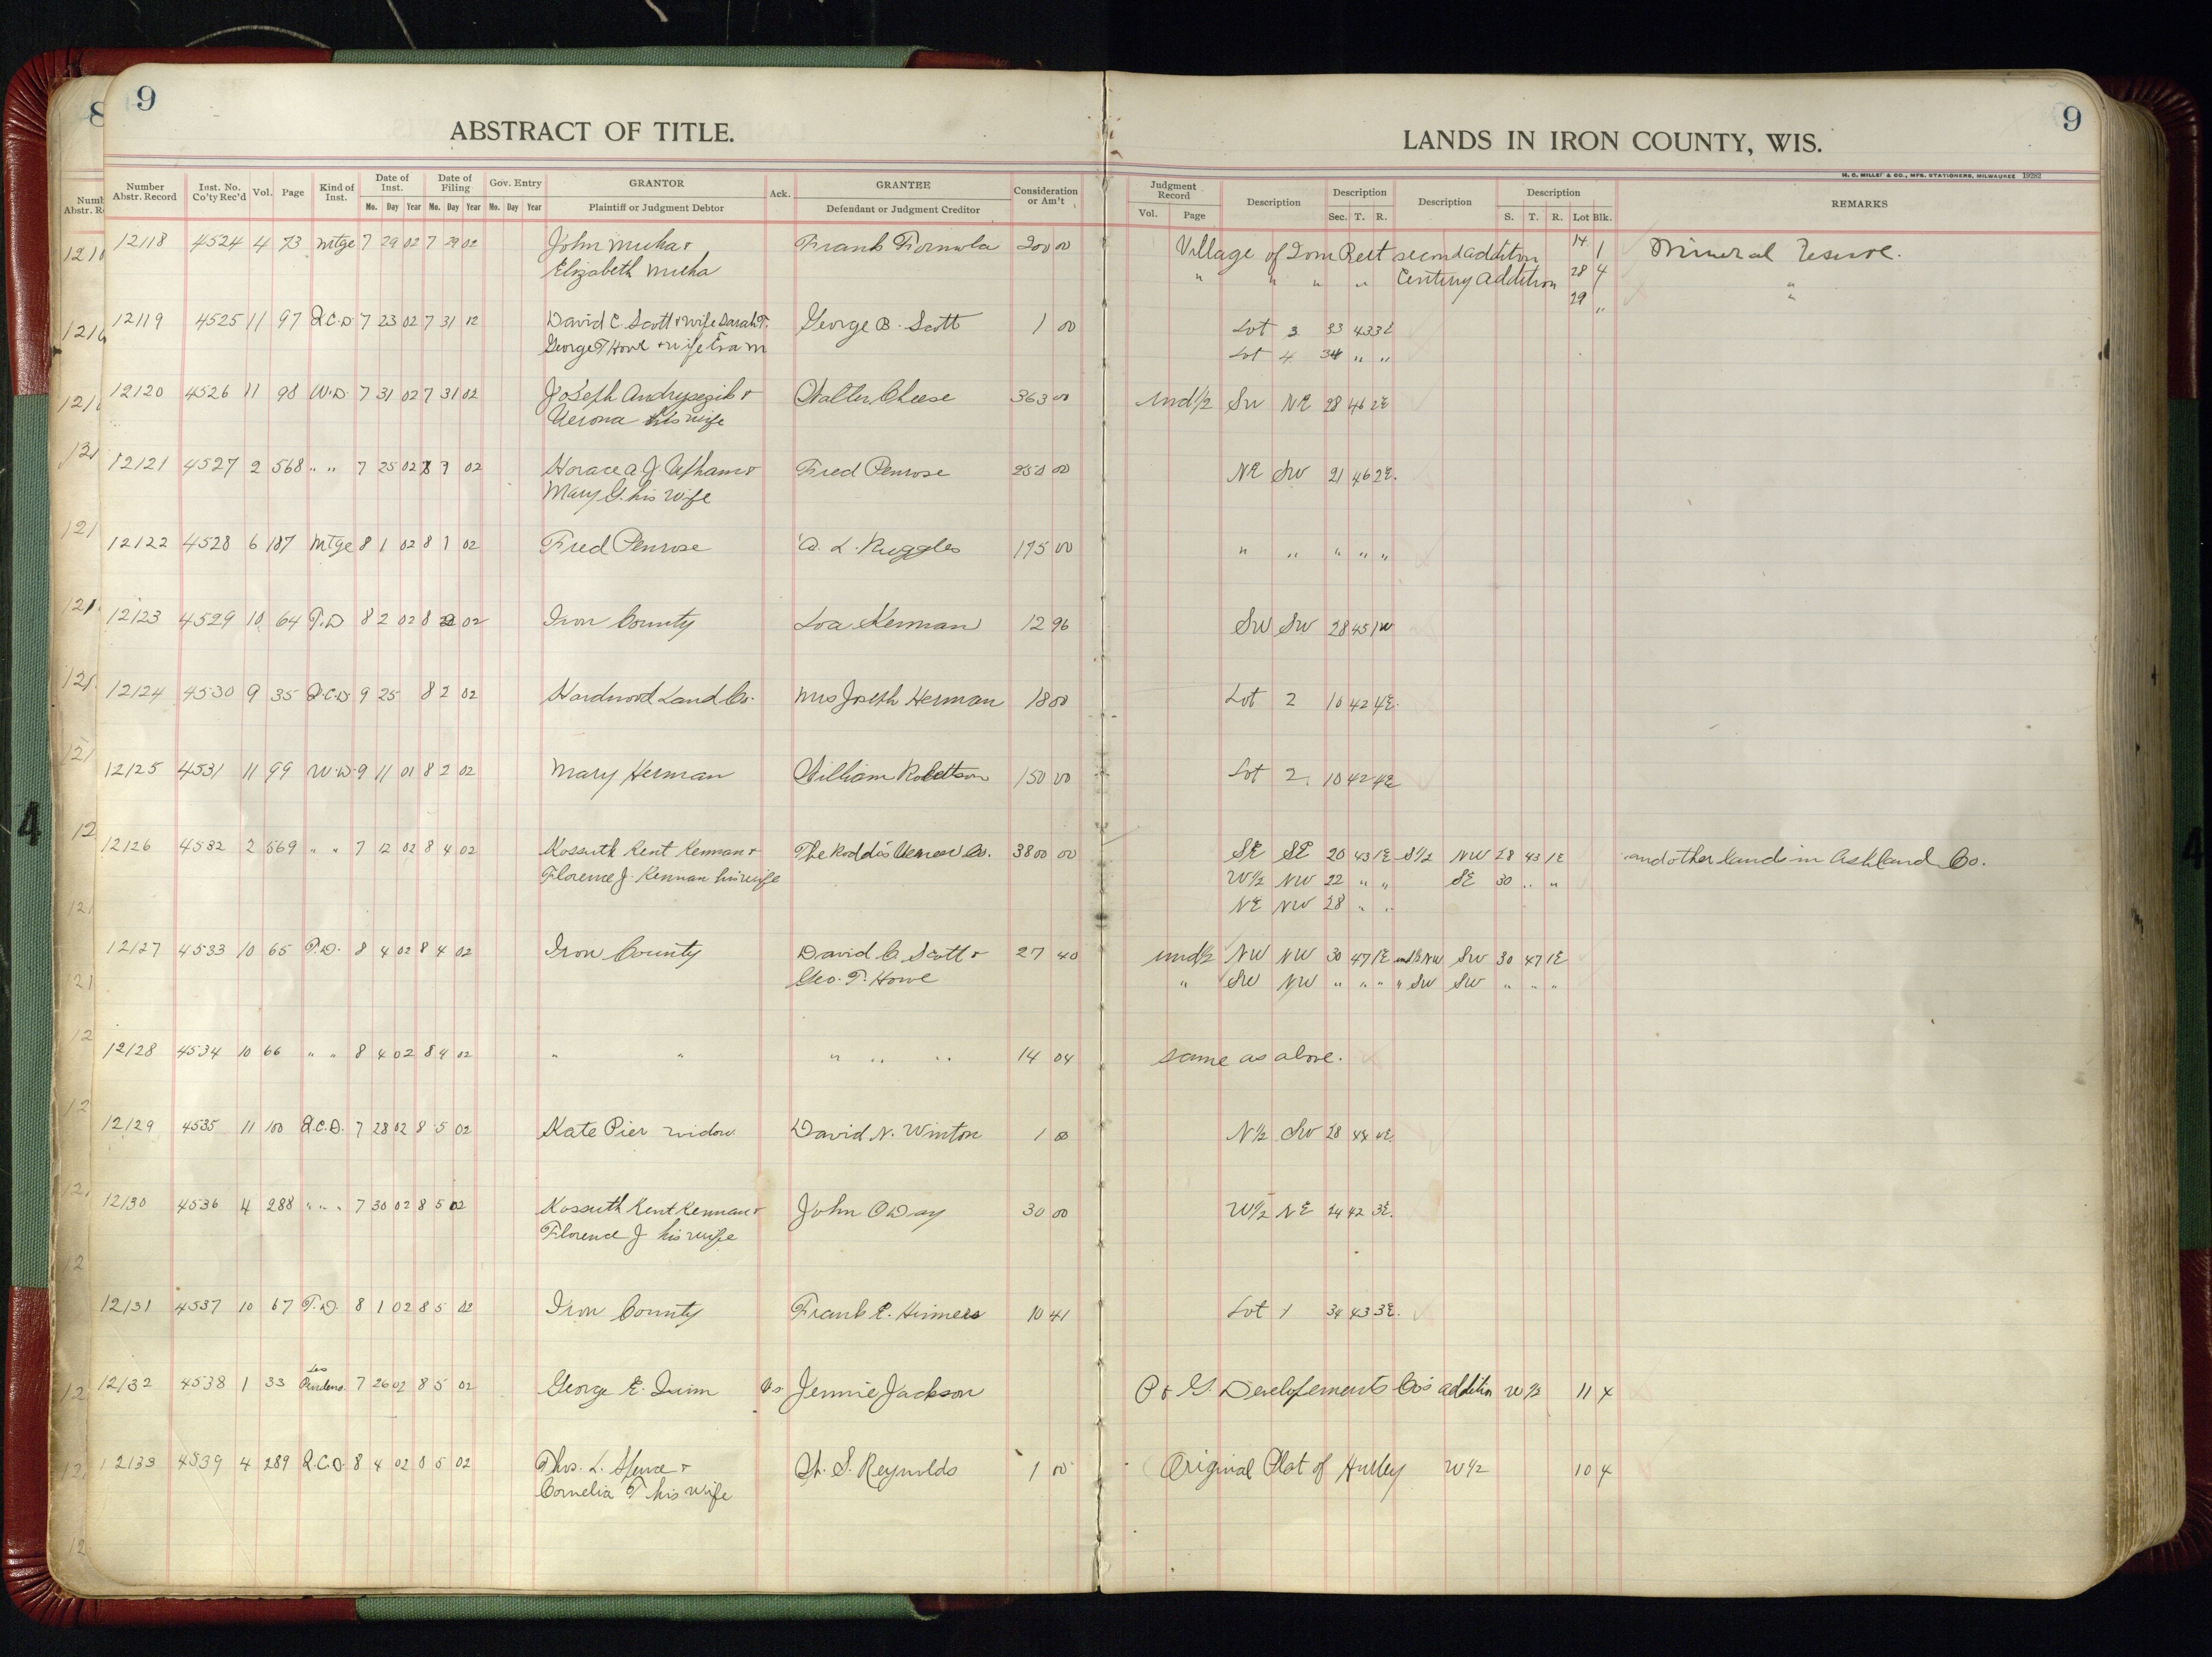 8
9
9
ABSTRACT OF TITLE.
LANDS IN IRON COUNTY, WIS.
H. C. MILLER & CO., MFG. STATIONERS, MILWAUKEE 19282
Number Abstr. Record Inst. No. Co'ty Rec'd Vol. Page Kind of Inst. Date of Inst. Date of Filing Gov. Entry GRANTOR Ack. GRANTEE Consideration or Am't Judgment Record Description Description Description Description REMARKS
Mo. Day Year Mo. Day Year Mo. Day Year Plaintiff or Judgment Debtor Defendant or Judgment Creditor Vol. Page Sec. T. R. S. T. R. Lot Blk.
12118 4524 4 73 Mtge 7 29 02 7 29 02 John Muha & Frank 200 00 Village of second addition 14 1 Mineral reserve.
Elizabeth Muha " " " " Century Addition 28 4 "
29 " "
12119 4525 11 97 Q.C.D. 7 23 02 7 31 David C. Scott & wife Sarah T. George B. Scott 1 00 Lot 3 33 43 3E
George T Howe & wife Eva M Lot 4 34 " "
12120 4526 11 98 W.D. 7 31 02 7 31 02 Joseph & Walter Cheese 363 00 und 1/2 SW NE 28 46 2E
Verona his wife
12121 4527 2 568 " " 7 25 02 8 1 02 Horace A. J. Upham & Fred Penrose 250 00 NE SW 21 46 2E.
Mary G. his wife
12122 4528 6 187 Mtge 8 1 02 8 1 02 Fred Penrose A. L. Ruggles 175 00 " " " " "
12123 4529 10 64 T.D 8 2 02 8 2 02 Iron County Loa Kennan 12 96 SW SW 28 45 1W
12124 4530 9 35 Q.C.D. 9 25 8 2 02 Hardwood Land Co. Mrs Joseph Herman 18 00 Lot 2 10 42 4E.
12125 4531 11 99 W.D. 9 11 01 8 2 02 Mary Herman William Robertson 150 00 Lot 2. 10 42 4E
12126 4532 2 569 " " 7 2 02 8 4 02 Kossuth Kent Kennan & The Roddis Veneer Co. 3800 00 SE SE 20 43 1E S1/2 NW 28 43 1E and other lands in Ashland Co.
Florence J. Kennan his wife W1/2 NW 22 " " SE 30 " "
NE NW 28 " "
12127 4533 10 65 T.D. 8 4 02 8 4 02 Iron County David C. Scott & 27 40 und 1/2 NW NW 30 47 1E und 1/2 NW SW 30 47 1E
Geo. T. Howe " SW NW " " " " SW SW " " "
12128 4534 10 66 " " 8 4 02 8 4 02 " " " " " 14 04 same as above.
12129 4535 11 100 Q.C.D. 7 28 02 8 5 02 Kate Pier widow David N. Winton 1 00 N1/2 SW 28 44
12130 4536 4 288 " " " 7 30 02 8 5 02 Kossuth Kent Kennan & John O Day 30 00 W1/2 NE 24 42 3E.
Florence J his wife
12131 4537 10 67 T.D. 8 1 02 8 5 02 Iron County Frank P. Hinners 10 41 Lot 1 34 43 3E.
12132 4538 1 33 Les Pendens. 7 26 02 8 5 02 George E. Quinn Vs. Jennie Jackson P & G. Developements Co's addition W 1/2 11 4
12133 4539 4 289 Q.C.D. 8 4 02 8 5 02 Thos. L. & H. S. Reynolds 1 00 Original Plat of Hurley W 1/2 10 4
Cornelia T his wife
4
4